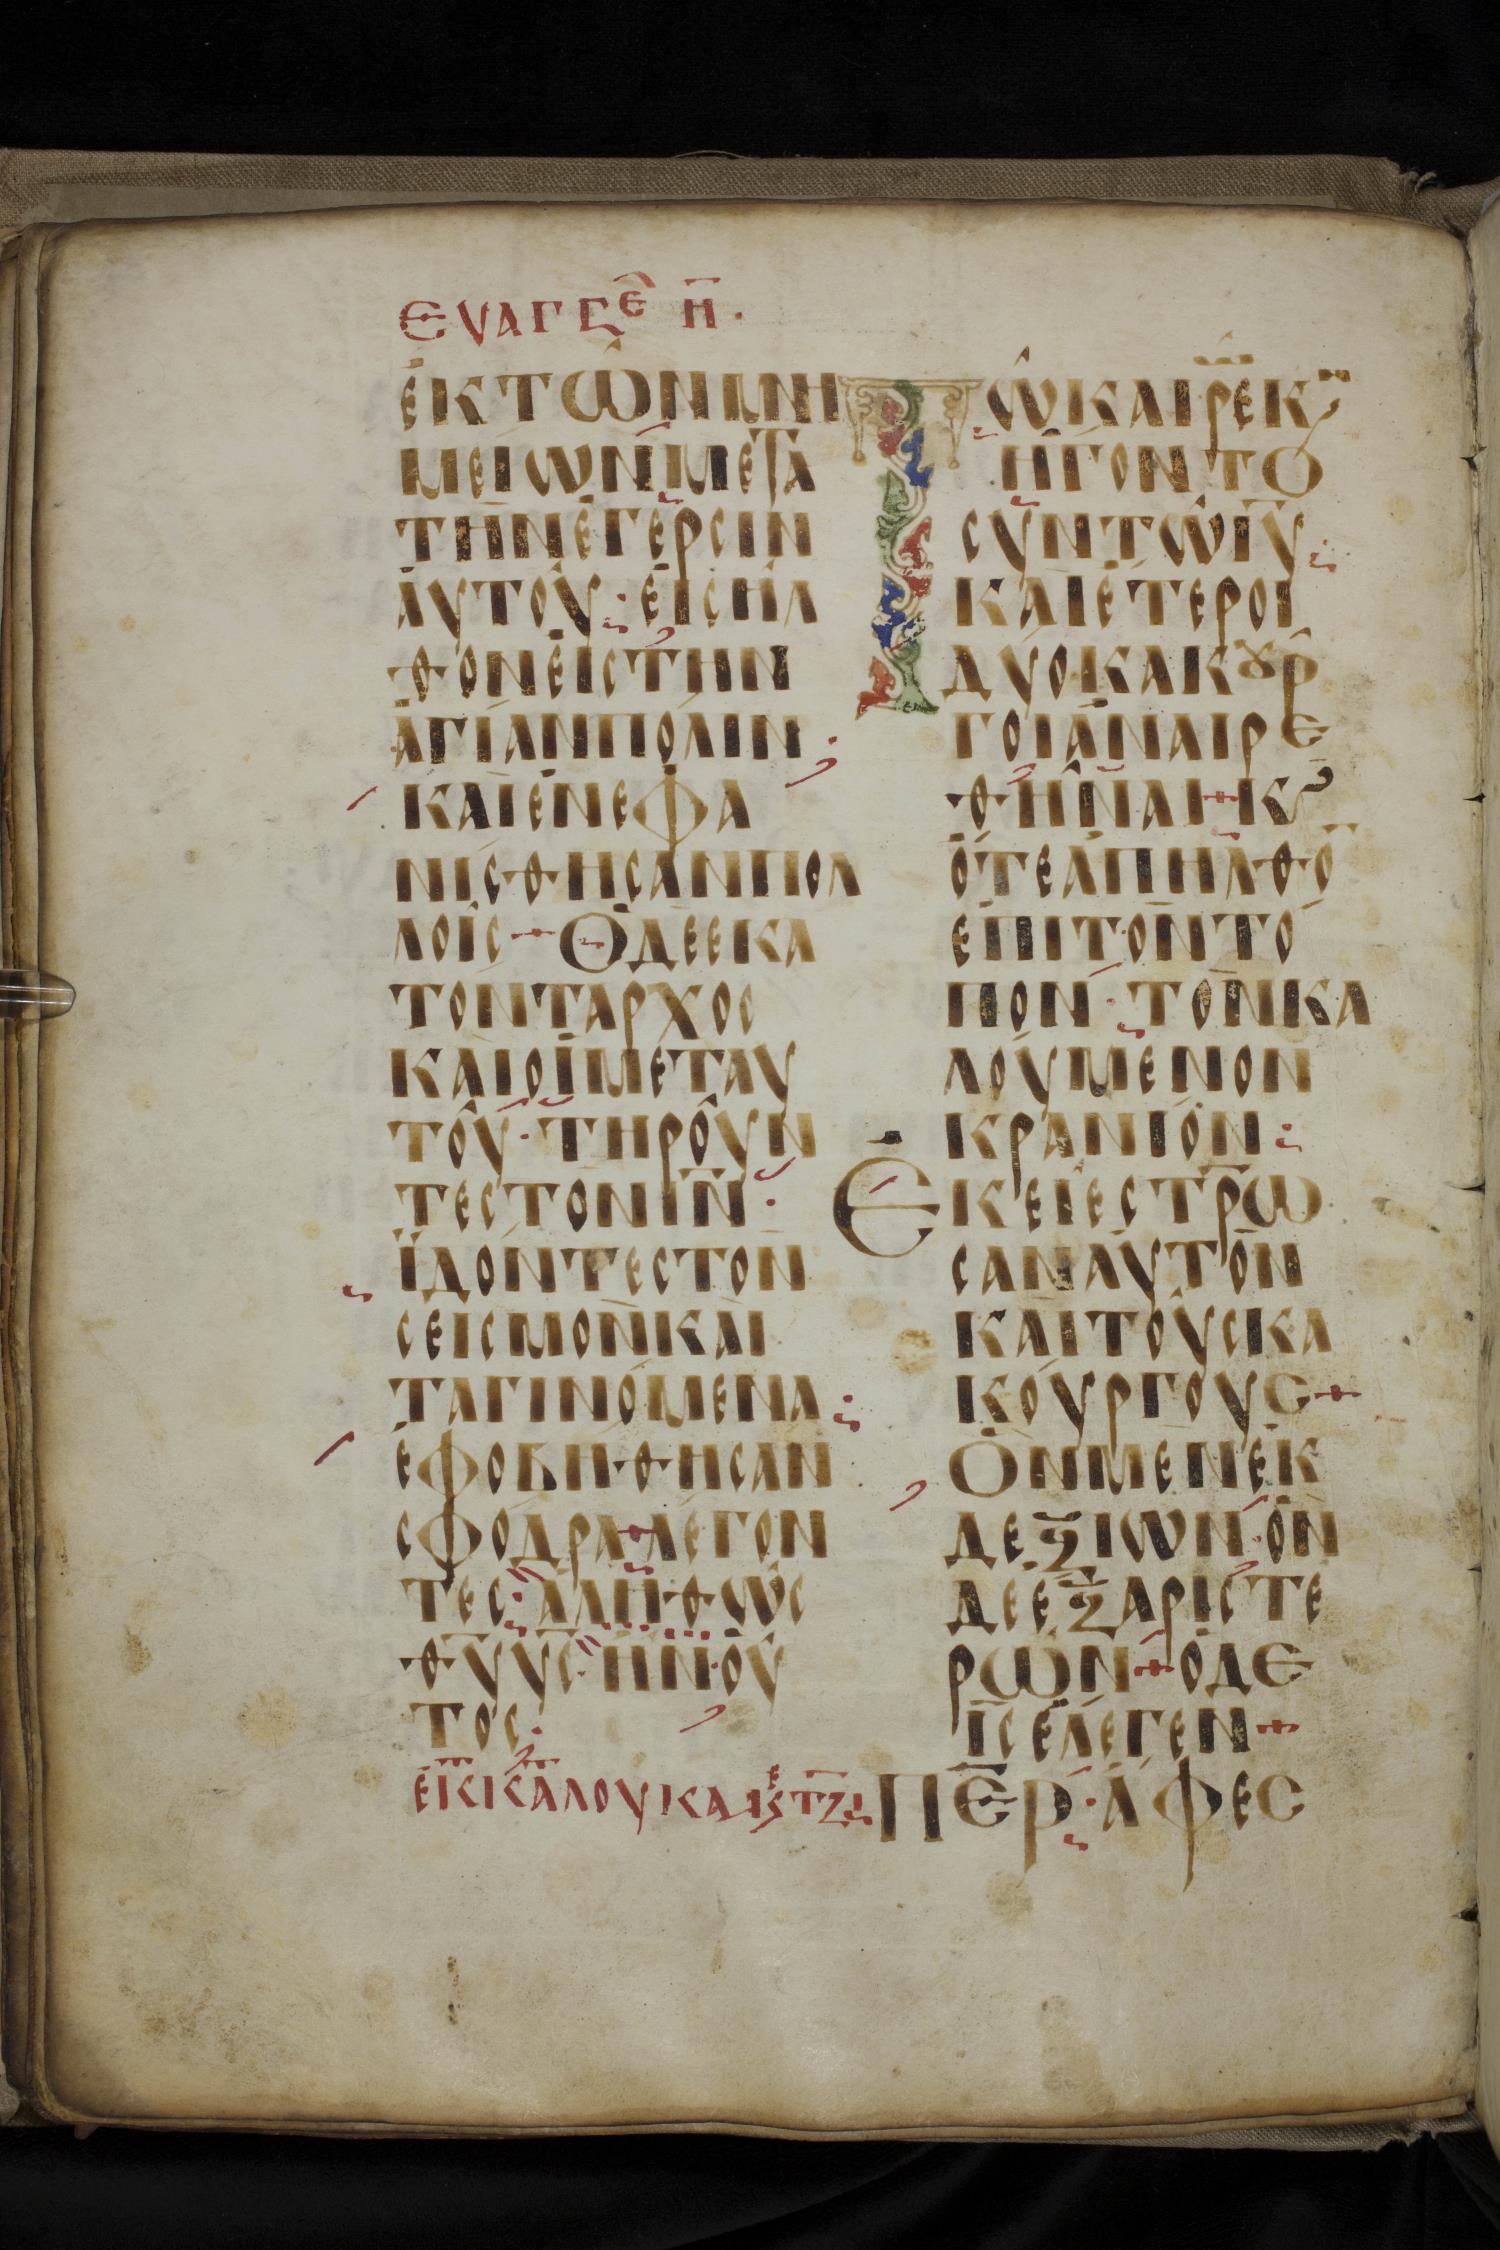 ΕΥΑΓΓΕ Η.
ΕΚΤΩΝΜΝΗ
ΜΕΙΩΝΜΕΤΑ
ΤΗΝΕΓΕΡΣΙΝ
ΑΥΤΟΥ· ΕΙΣΗΛ
ΘΟΝΕΙΣΤΗΝ
ΑΓΙΑΝΠΟΛΙΝ·
ΚΑΙΕΝΕΦΑ
ΝΙΣΘΗΣΑΝΠΟΛ
ΛΟΙΣ+ΟΔΕΕΚΑ
ΤΟΝΤΑΡΧΟΣ
ΚΑΙΟΙΜΕΤΑΥ
ΤΟΥ·ΤΗΡΟΥΝ
ΤΕΣΤΟΝΙΝ·
ΪΔΟΝΤΕΣΤΟΝ
ΣΕΙΣΜΟΝΚΑΙ
ΤΑΓΙΝΟΜΕΝΑ·
ΕΦΟΒΗΘΗΣΑΝ
ΣΦΟΔΡΑ+ΛΕΓΟΝ
ΤΕΣ·ΑΛΗΘΩΣ
ΘΥΥΣ·ΗΝ·ΟΥ
ΤΟΣ·
ΤΩΚΑΙΡΕΚ
ΗΓΟΝΤΟ
ΣΥΝΤΩΙΥ
ΚΑΙΕΤΕΡΟΙ
ΔΥΟΚΑΚȢΡ
ΓΟΙΑΝΑΙΡΕ
ΘΗΝΑΙ+Κ
ΟΤΕΑΠΗΛΘΟ
ΕΠΙΤΟΝΤΟ
ΠΟΝ·ΤΟΝΚΑ
ΛΟΥΜΕΝΟΝ
ΚΡΑΝΙΟΝ·
ΕΚΕΙΕΣΤΡΩ
ΣΑΝΑΥΤΟΝ
ΚΑΙΤΟΥΣΚΑ
ΚΟΥΡΓΟΥΣ+
ΟΝΜΕΝΕΚ
ΔΕΞΙΩΝ·ΟΝ
ΔΕΕΞΑΡΙΣΤΕ
ΡΩΝ+ΟΔΕ
ΙΣΕΛΕΓΕΝ+
ΠΕΡ·ΑΦΕΣ